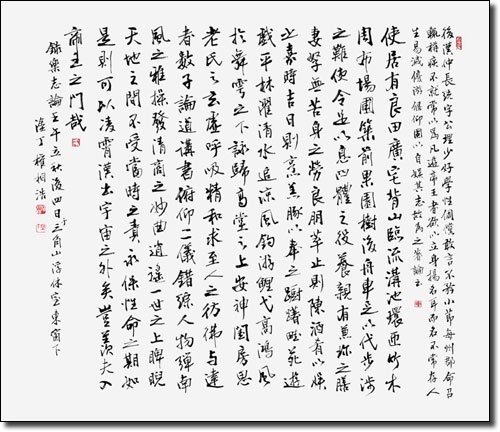 後漢仲長統字公理少好學性倜儻敢言不矜小節每州郡命召
輒稱疾不就常以為凡遊帝王者欲以立身揚名耳而名不常存人
生易滅優游偃仰可以自娛其志故為之著論云
使居有良田廣宅背山臨流溝池環匝竹木
周布場圃築前果園樹後舟車足以代步涉
之難使令足以息四體之役養親有兼珍之膳
妻孥無苦身之勞良朋萃止則陳酒肴以娛
之嘉時吉日則烹羔豚以奉之躕躇畦苑遊
戲平林濯清水追涼風釣游鯉弋高鴻風
於舞雩之下詠歸高堂之上安神閨房思
老氏之玄虛呼吸精和求至人之彷彿與達
者數子論道講書俯仰二儀錯綜人物彈南
風之雅操發清商之妙曲逍遙一世之上睥睨
天地之間不受當時之責永保性命之期如
是則可以凌霄漢出宇宙之外矣豈羨夫入
帝王之門哉
錄樂志論壬午立秋後四日三角山浮休室東窗下
丁權相浩